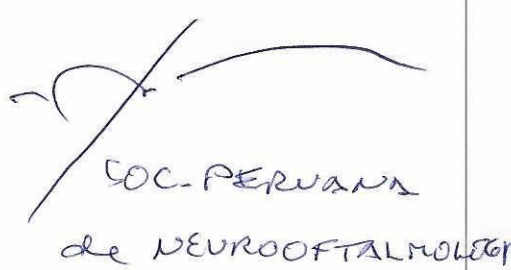 SOC. PERUANA
de NEUROOFTALMOLOGI